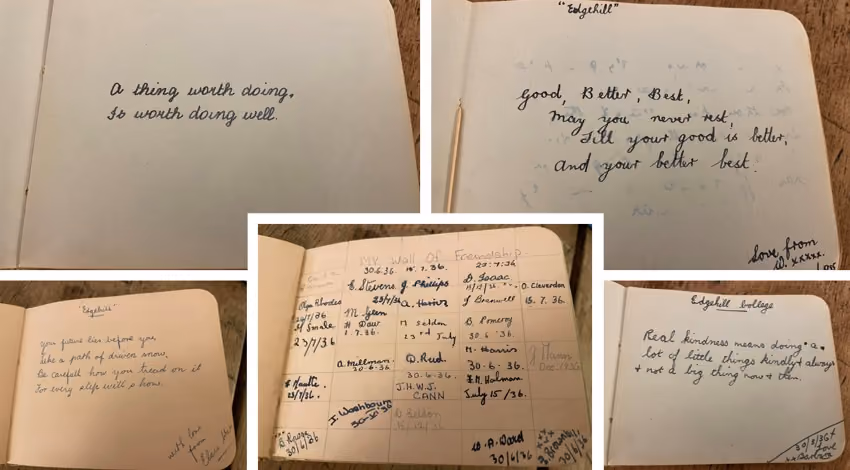 A thing worth doing,
Is worth doing well.
"Edgehill"
Good, Better, Best,
May you never rest,
Till your good is better,
And your better best.
love from
D. xxxxx.
"Edgehill"
your future lies before you,
like a path of driven snow,
Be carefull how you tread on it
For every step will show.
with love
from
My Wall Of Friendship.
30.6.36. 15.7.36. 23.7.36
E. Stevens J. Phillips D. Isaac
O. Claverdon
Olga Rhodes 23/7/36 A. Harris J. Bramwell 15.7.36.
M. Green
H Daw M Seldon B. Pomeroy
1.7.36. 23rd July 30.6.36.
23/7/36
M. Harris
A. Millman D. Rud. J Mann
30.6.36 30.6.36. 30.6.36. Dec/1936
J.H.W.S. E.M. Holman
23/7/36. CANN July 15/36.
J. Washbourn
30-10-36
W. A. Ward
30/6/36 30/6/36
Edgehill College
Real kindness means doing a
lot of little things kindly + always
+ not a big thing now + then.
30/6/36
love
Barbara